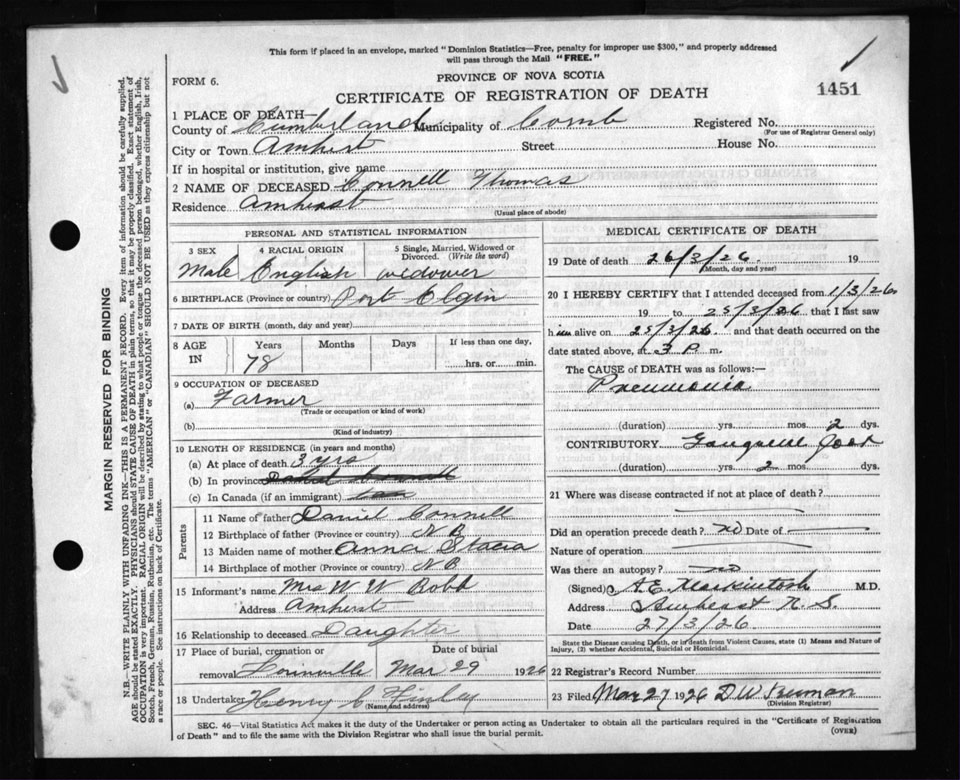 This form if placed in an envelope, marked "Dominion Statistics—Free, penalty for improper use $300," and properly addressed
will pass through the Mail "FREE."
FORM 6.
PROVINCE OF NOVA SCOTIA
CERTIFICATE OF REGISTRATION OF DEATH
1451
1 PLACE OF DEATH—
County of Cumberland Municipality of Comb Registered No.
(For use of Registrar General only)
City or Town Amherst Street House No.
If in hospital or institution, give name
2 NAME OF DECEASED Connell Thomas
Residence Amherst
(Usual place of abode)
PERSONAL AND STATISTICAL INFORMATION
3 SEX 4 RACIAL ORIGIN 5 Single, Married, Widowed or
Divorced. (Write the word)
Male English widower
6 BIRTHPLACE (Province or country) Port Elgin
7 DATE OF BIRTH (month, day and year)
8 AGE IN Years Months Days If less than one day,
78 hrs. or min.
9 OCCUPATION OF DECEASED
(a) Farmer
(Trade or occupation or kind of work)
(b)
(Kind of industry)
10 LENGTH OF RESIDENCE (in years and months)
(a) At place of death 3 yrs
(b) In province
(c) In Canada (if an immigrant)
Parents
11 Name of father Daniel Connell
12 Birthplace of father (Province or country) N B
13 Maiden name of mother Anna Stacia
14 Birthplace of mother (Province or country) N B
15 Informant's name Mrs W W Robb
Address Amherst
16 Relationship to deceased Daughter
17 Place of burial, cremation or Date of burial
removal Mar 29 1926
18 Undertaker Henry C Finlay
(Name and address)
MEDICAL CERTIFICATE OF DEATH
19 Date of death 26/3/26. 19
(Month, day and year)
20 I HEREBY CERTIFY that I attended deceased from 1/3/26
19 to 25/3/26 that I last saw
him alive on 25/3/26 and that death occurred on
date stated above, at 3 P. m.
The CAUSE of DEATH was as follows:—
Pneumonia
(duration) yrs. mos. 2 dys.
CONTRIBUTORY
(duration) yrs. 2 mos. dys.
21 Where was disease contracted if not at place of death?
Did an operation precede death? no Date of
Nature of operation
Was there an autopsy? no
(Signed) A. E. Mackintosh M.D.
Address Amherst N. S.
Date 27/3/26
State the Disease causing Death, or in death from Violent Causes, state (1) Means and Nature of
Injury, (2) whether Accidental, Suicidal or Homicidal.
22 Registrar's Record Number
23 Filed Mar 27 1926 D. W.
(Division Registrar)
SEC. 46—Vital Statistics Act makes it the duty of the Undertaker or person acting as Undertaker to obtain all the particulars required in the "Certificate of Registration
of Death" and to file the same with the Division Registrar who shall issue the burial permit.
(OVER)
MARGIN RESERVED FOR BINDING
N.B.—WRITE PLAINLY WITH UNFADING INK—THIS IS A PERMANENT RECORD. Every item of information should be carefully supplied.
AGE should be stated EXACTLY. PHYSICIANS should STATE CAUSE OF DEATH in plain terms, so that it may be properly classified. Exact statement of
OCCUPATION is very important. RACIAL ORIGIN will be described by stating to what people or tongue the deceased person belonged, whether English, Irish,
Scotch, French, German, Russian, Ruthenian, etc. The terms "AMERICAN" or "CANADIAN" SHOULD NOT BE USED as they express citizenship but not
a race or people. See instructions on back of Certificate.